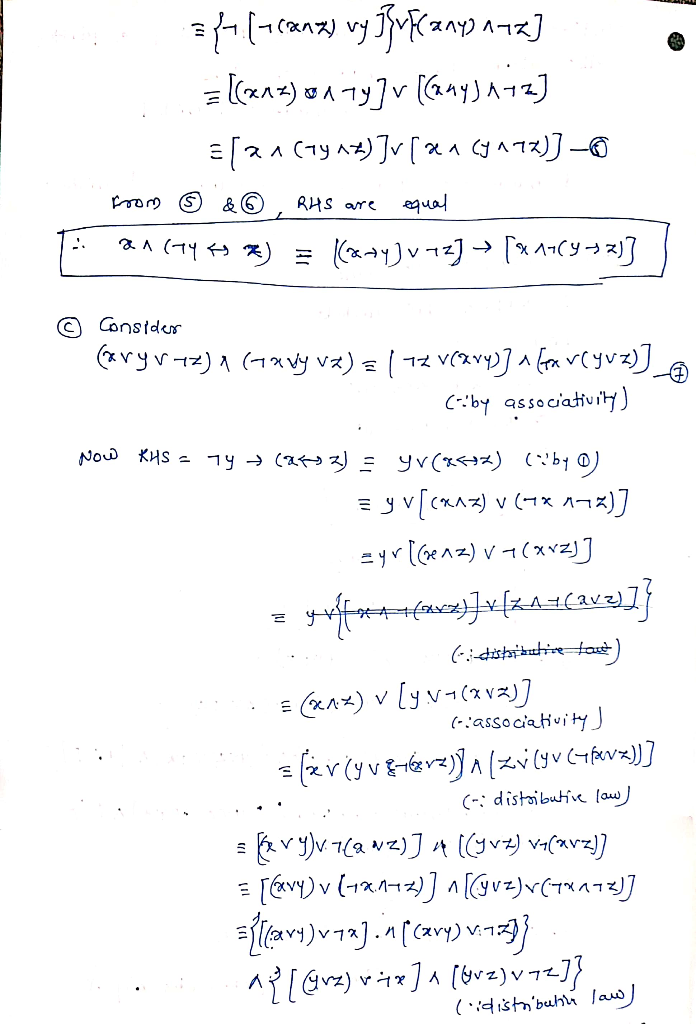 ≡ {¬[¬(x∧z) ∨y]}∨[(x∧y) ∧¬z]
≡ [(x∧z) ∧¬y] ∨ [(x∧y) ∧¬z]
≡ [x ∧ (¬y ∧z)]∨[x ∧ (y ∧¬z)] —⑥
From ⑤ & ⑥, RHS are equal
∴ x ∧ (¬y ↔ z) ≡ [(x→y) ∨ ¬z] → [x ∧¬(y→z)]
ⓒ Consider
(x∨y∨¬z) ∧ (¬x∨y∨z) ≡ [¬z ∨(x∨y)] ∧ [¬x ∨(y∨z)] —⑦
(∵by associativity)
Now RHS = ¬y → (x↔z) ≡ y∨(x↔z) (∵by ①)
≡ y ∨[(x∧z) ∨ (¬x ∧¬z)]
≡ y∨[(x∧z) ∨ ¬(x∨z)]
≡ y∨{[x∧¬(x∨z)]∨[z∧¬(x∨z)]}
(∵distributive law)
≡ (x∧z) ∨ [y∨¬(x∨z)]
(∵associativity)
≡ [x∨(y∨¬(x∨z))]∧[z∨(y∨(¬(x∨z))]
(∵ distributive law)
≡ [(x∨y)∨¬(x∨z)] ∧ [(y∨z) ∨¬(x∨z)]
≡ [(x∨y)∨(¬x∧¬z)] ∧[(y∨z)∨(¬x∧¬z)]
≡{[(x∨y)∨¬x]∧[(x∨y)∨¬z]}
∧{[(y∨z)∨¬x]∧[(y∨z)∨¬z]}
(∵distributive law)